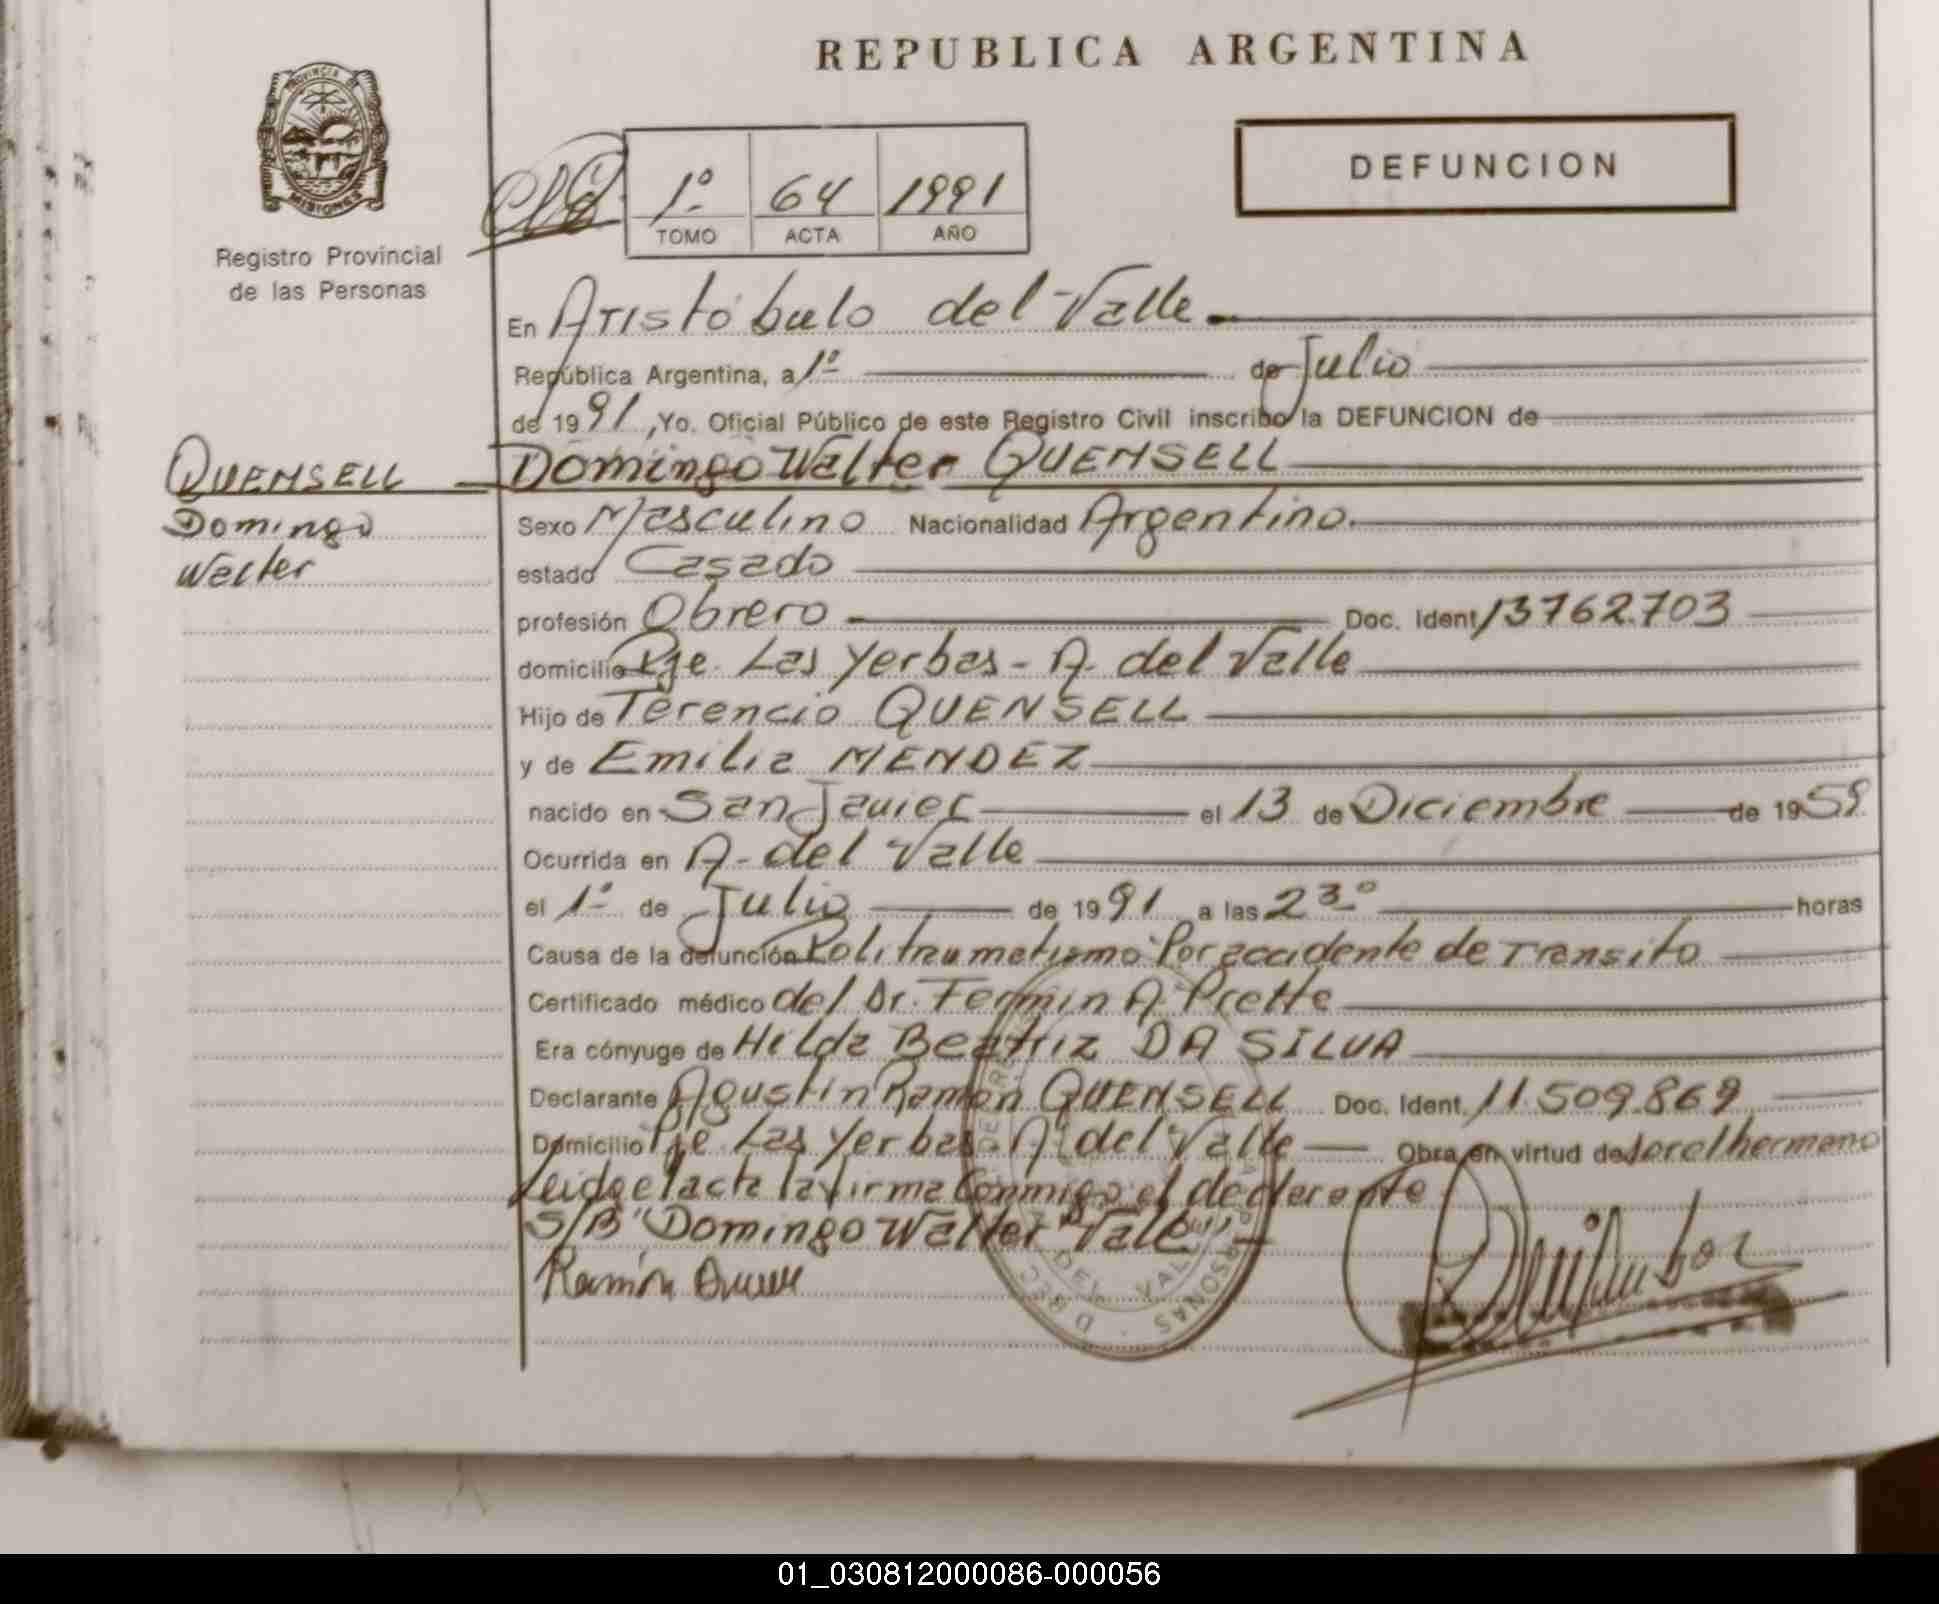 REPUBLICA ARGENTINA
PROVINCIA DE
MISIONES
Registro Provincial
de las Personas
DEFUNCION
1º 64 1991
TOMO ACTA AÑO
En Aristóbulo del Valle.
República Argentina, a 1º de Julio
de 1991, Yo. Oficial Público de este Registro Civil inscribo la DEFUNCION de
QUENSELL
Domingo
Walter
Domingo Walter QUENSELL
Sexo Masculino Nacionalidad Argentino.
estado Casado
profesión Obrero Doc. Ident 13762.703
domicilio Pje. Las Yerbas - A. del Valle
Hijo de Terencio QUENSELL
y de Emilia MENDEZ
nacido en San Javier el 13 de Diciembre de 1959
Ocurrida en A. del Valle
el 1º de Julio de 1991 a las 23º horas
Causa de la defunción Politraumatismo Por accidente de Transito
Certificado médico del Dr. Fermin A. Prette
Era cónyuge de Hilda Beatriz DA SILVA
Declarante Agustin Ramón QUENSELL Doc. Ident. 11.509.869
Domicilio Pje. Las Yerbas. A. del Valle Obra en virtud de ser el hermano
Leida el acta la firma Conmigo el declarante
S/B "Domingo Walter" Vale
Ramón
01_030812000086-000056